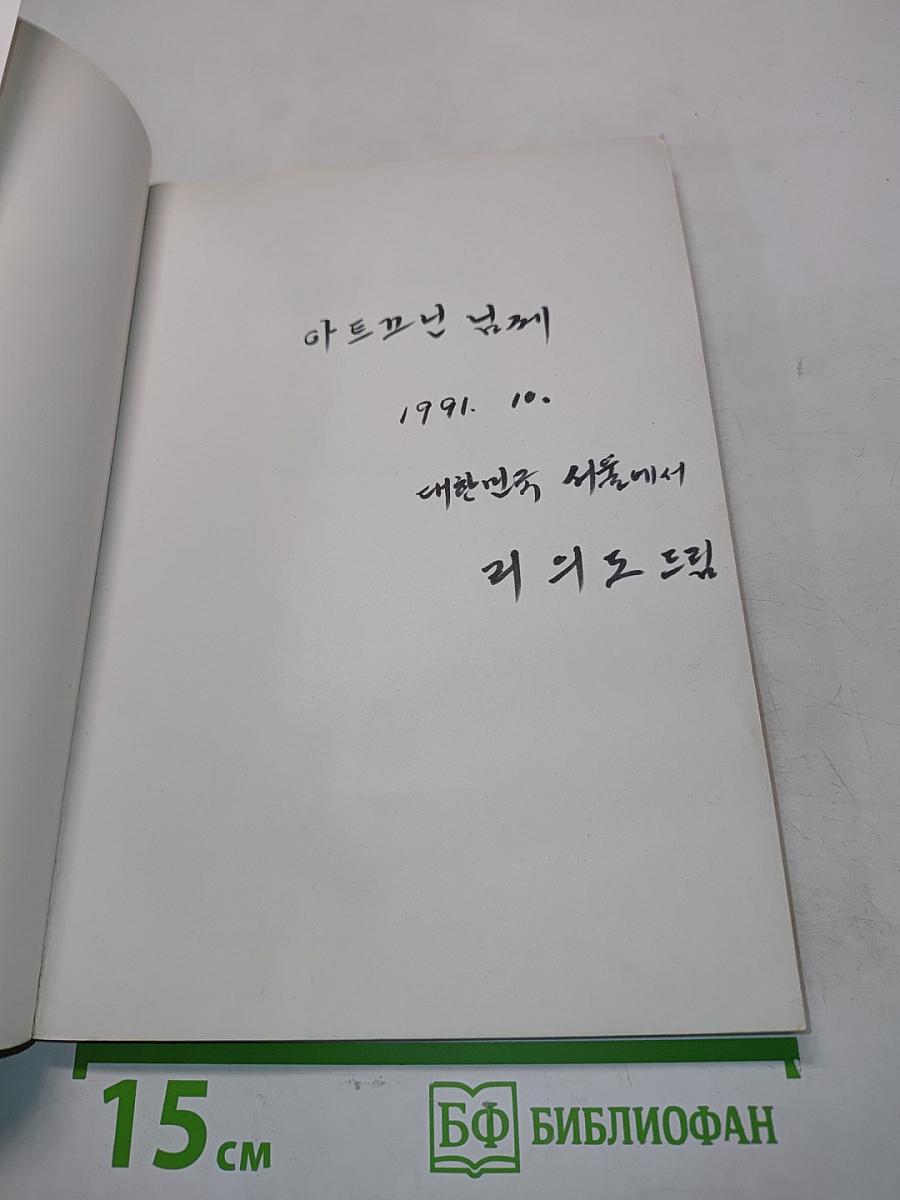 아트끄닌 님께
1991. 10.
대한민국 서울에서
리 의 도 드림
15 см
БФ БИБЛИОФАН